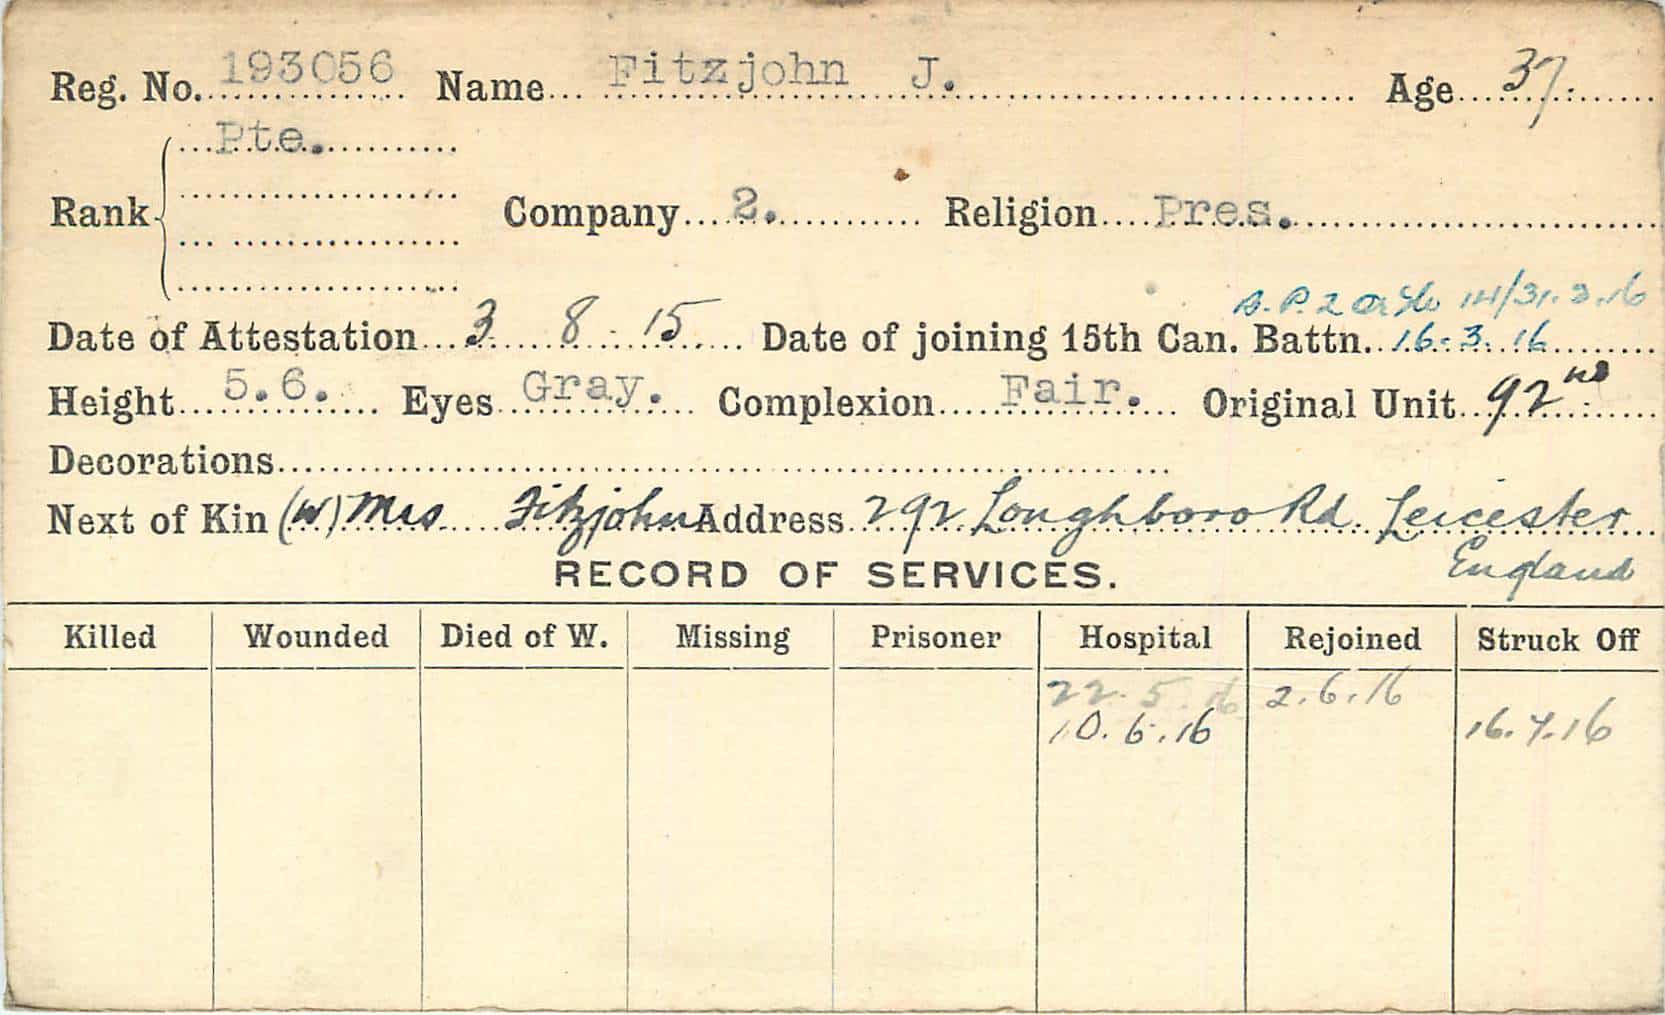 Reg. No. 193056 Name Fitzjohn J. Age 37.
Pte.
Rank Company 2. Religion Pres.
14/31.3.16
Date of Attestation 3 8 15 Date of joining 15th Can. Battn. 16.3.16
Height 5.6. Eyes Gray. Complexion Fair. Original Unit 92nd
Decorations
Next of Kin (W) Mrs Fitzjohn Address 292 Loughboro Rd. Leicester
England
RECORD OF SERVICES.
Killed Wounded Died of W. Missing Prisoner Hospital Rejoined Struck Off
22.5.16 2.6.16
10.6.16 16.7.16